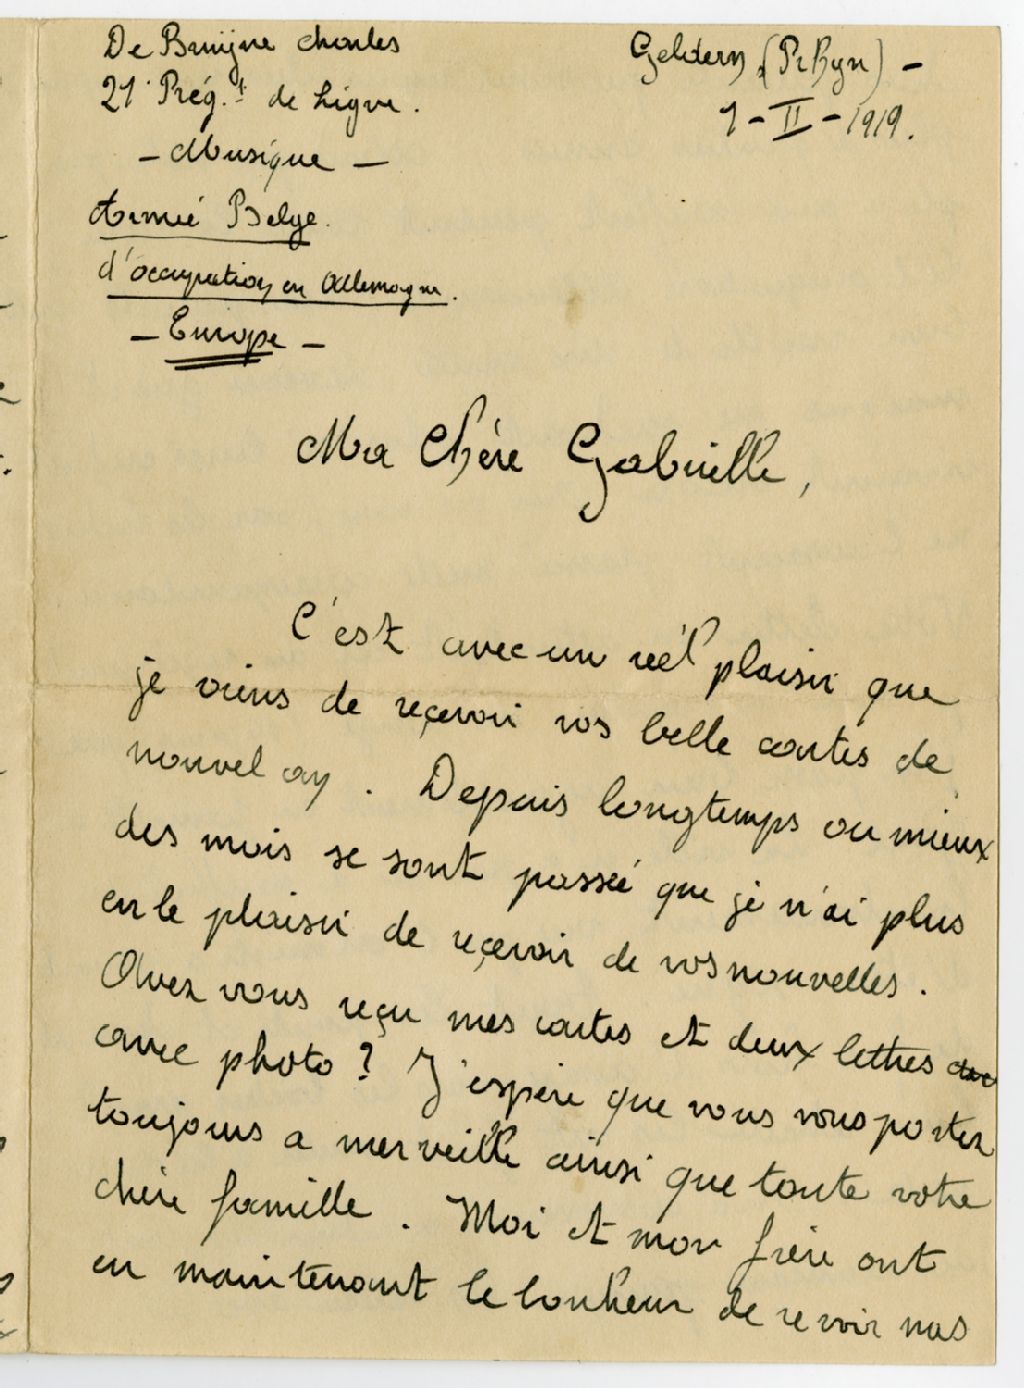 De Bruijne Charles
21 Rég.t de Ligne.
- Musique -
Armée Belge.
d'occupation en Allemagne.
- Europe -
Geldern (Pr Ryn) -
1-II-1919.
Ma Chère Gabrielle,
C'est avec un réél plaisir que
je viens de reçevoir vos belle cartes de
nouvel an. Depuis longtemps ou mieux
des mois se sont passée que je n'ai plus
eu le plaisir de reçevoir de vos nouvelles.
Avez vous reçu mes cartes et deux lettres
avec photo? J'espère que vous vous portez
toujours a merveille ainsi que toute votre
chère famille. Moi et mon frère ont
eu maintenant le bonheur de revoir nos